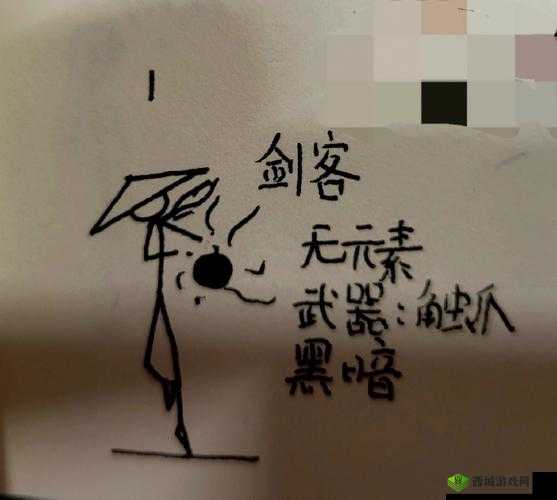 剑客
无元素
武器:触爪
黑暗
西城游戏网